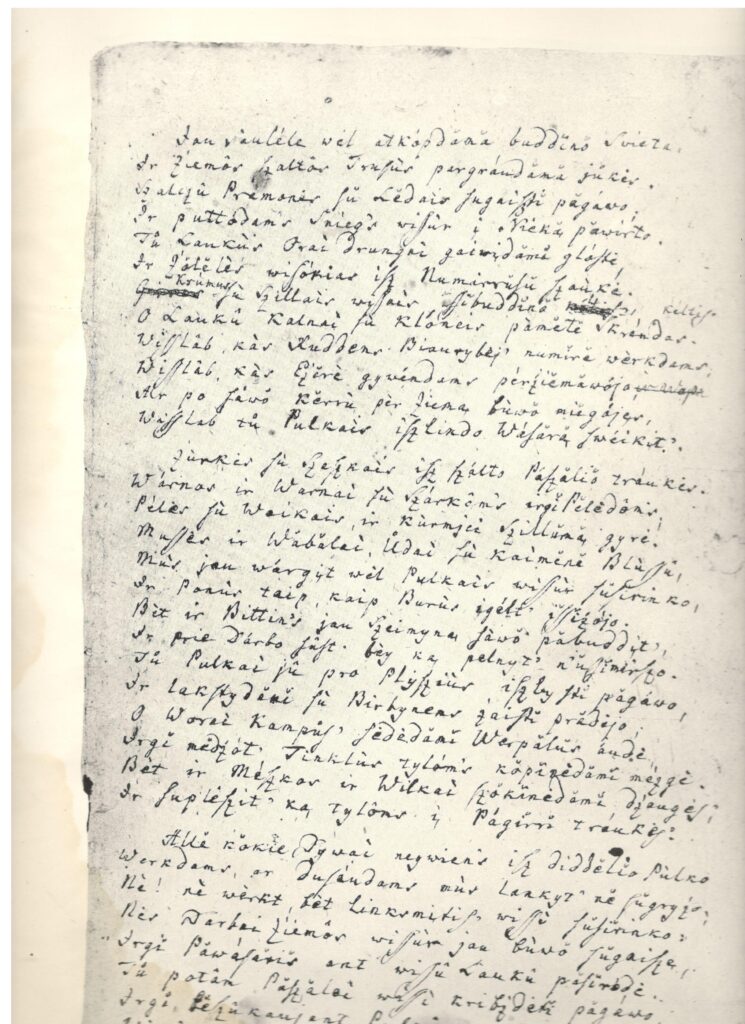 Jau Saulele wėl atkopdama buddino Swieta,
Ir Źiemôs szaltôs Trusus pargráudama jůkes.
Szalczû Premonės sù Lėdais sugaiszti pagawo,
Ir puttodams Snieg's wissur į Nieka pawirto.
Tů Laukus Orai drungni gaiwidami glostė,
Ir Źoleles wisokias isz Numirrusû szaukė.
Krumus sù Szillais wissais issibuddino keltis,
O Laukû Kalnai sù Klóneis pametė Skrandas.
Wisslab, kas Ruddens Biaurybėj' numirė werkdams,
Wisslab, kas Eźerė gywendams pérźiemawojo
Ar po sawo Kerru per Źiema buwo miegojęs,
Wisslab tů Pulkais iszlindo Wasara sweikįt'.
Źurkės sù Szeszkais isz szalto Paszalio traukės.
Warnos ir Warnai sù Szarkoms irgi Peledoms,
Pelės sù Waikais, ir Kurmjei Szilluma gyrė.
Mussės ir Wabalai, Ůdai sù Kaimenė Blussû,
Mus jau wargįt wėl Pulkais wissur susirinko,
Ir Ponus taip, kaip Burus įgelt' issiźojo.
Bet ir Bittin's jau Szeimyna sawo pabuddįt',
Ir prie Darbo sust' bey ką pelnyt' n'uźmirszo.
Tů Pulkai jû pro Plyszius iszlysti pagawo,
Ir lakstydami sù Birbynems źaisti pradėjo,
O Worai Kampůs' sėdėdami Werpalus audė,
Irgi medźot' Tinklus tyloms kopinėdami mezgė.
Bet ir Meszkos ir Wilkai szokinėdami dźaugės,
Ir suplėszit' ką tyloms į Pagirri traukės.
Alle kokie Dywai negwien's isz diddėlio Pulko
Werkdams, ar Dusaudams mus lankyt' nė sugryźo,
Ne! ne werkt, bet linksmitis' wissi susirinko:
Nės Darbai Źiemôs wissur jau buwo sugaiszę,
Irgi Pawasaris ant wissû Laukû pasirodė.
Tů potam Paszalei wissi kribźdėti pagawo